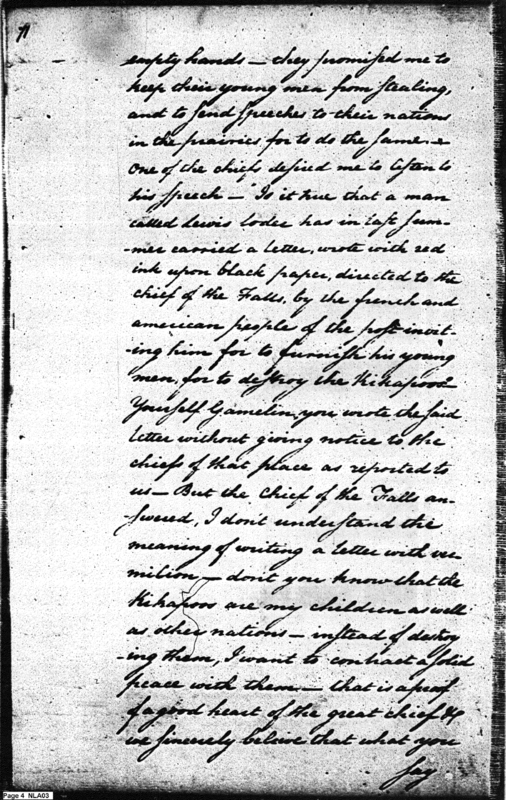 empty hands — they promissed me to
keep their young men from stealing,
and to send speeches to their nations
in the prairies for to do the same —
One of the chiefs desired me to listen to
his speech — "Is it true that a man
called Lewis Loder has in last Sum-
-mer carried a letter, wrote with red
ink upon black paper, directed to the
chief of the Falls, by the french and
american people of the post invit-
-ing him for to furnish his young
men, for to destroy the Kikapoos
Yourself Gamelin, you wrote the said
letter without giving notice to the
chiefs of that place as reported to
us — But the chief of the Falls an-
-swered, I don't understand the
meaning of writing a letter with ver
milion — don't you know that the
Kikapoos are my children as well
as other nations — instead of destroy
-ing them, I want to contract a solid
peace with them — that is a proof
of a good heart of the great chief &
we sincerely believe that what you
say
Page 4 NLA03